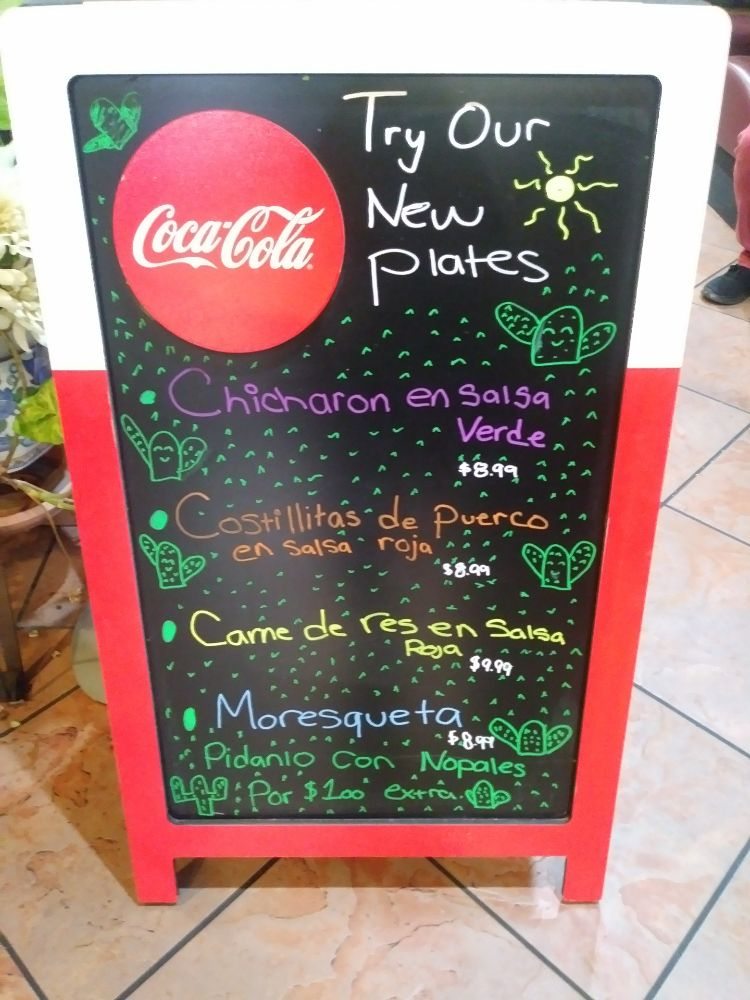 Coca-Cola
Try Our
New
Plates
Chicharon en Salsa
Verde
$8.99
Costillitas de Puerco
en Salsa roja
$8.99
Carne de res en Salsa
Roja
$9.99
Moresqueta
$8.99
Pidanlo con Nopales
Por $1.00 extra.